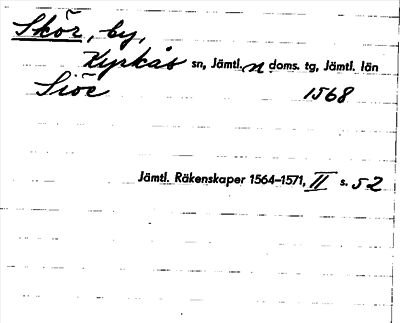 Skör, by,
Kyrkås sn, Jämtl. n doms. tg, Jämtl. län
Siöe 1568
Jämtl. Räkenskaper 1564–1571, II s. 52